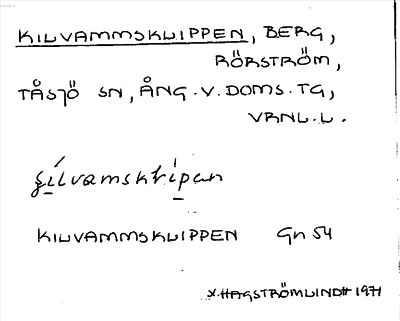 KILVAMMSKLIPPEN, BERG,
RÖRSTRÖM,
TÅSJÖ SN, ÅNG.V.DOMS.TG,
VRNL.L.
KILVAMMSKLIPPEN Gn 54
HAGSTRÖMLINDH 1971